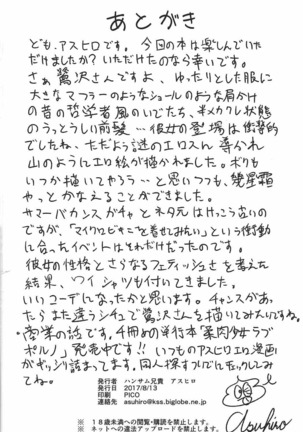 あとがき
ども、アスヒロです。今回の本は楽しんでいた
だけましたか?いただけたのなら幸いです。
さぁ鷺沢さんですよ、ゆったりとした服に
大きなマフラーのようなショールのような肩かけ
の昔の哲学者風のいでたち、半メカクレ状態
のうっとうしい前髪…彼女の登場は衝撃的
でしたね、ただよう謎のエロスに導かれ
山のようにエロ絵が描かれました。ボクも
いつか描いてやろう…と思いつつも、幾星霜
やっとかなえることができました。
サマーバカンスガチャとネタ元はけっこう古いの
ですが、「マイクロビキニを着せてみたい」という衝動
に合ったイベントはそれだけだったのです。
彼女の性格とさらなるフェティッシュさを考えた
結果、ワイシャツも付いてきました。
いいコーデになったかと思います。チャンスがあっ
たらまた違うシチュで鷺沢さんを描いてみたいですね。
・商業の話です。4冊めの単行本「柔肉少女ラブ
ポルノ」発売中!!いつものアスヒロエロ漫画
がギッシリ詰まってます。同人探すついでにチェックしてみ
てね。
発行者 ハンサム兄貴 アスヒロ
発行日 2017/8/13
印刷 PICO
連絡先 asuhiro@kss.biglobe.ne.jp
※18歳未満への閲覧・購読を禁止します。
※ネットへの違法アップロードを禁止します。
Asuhiro